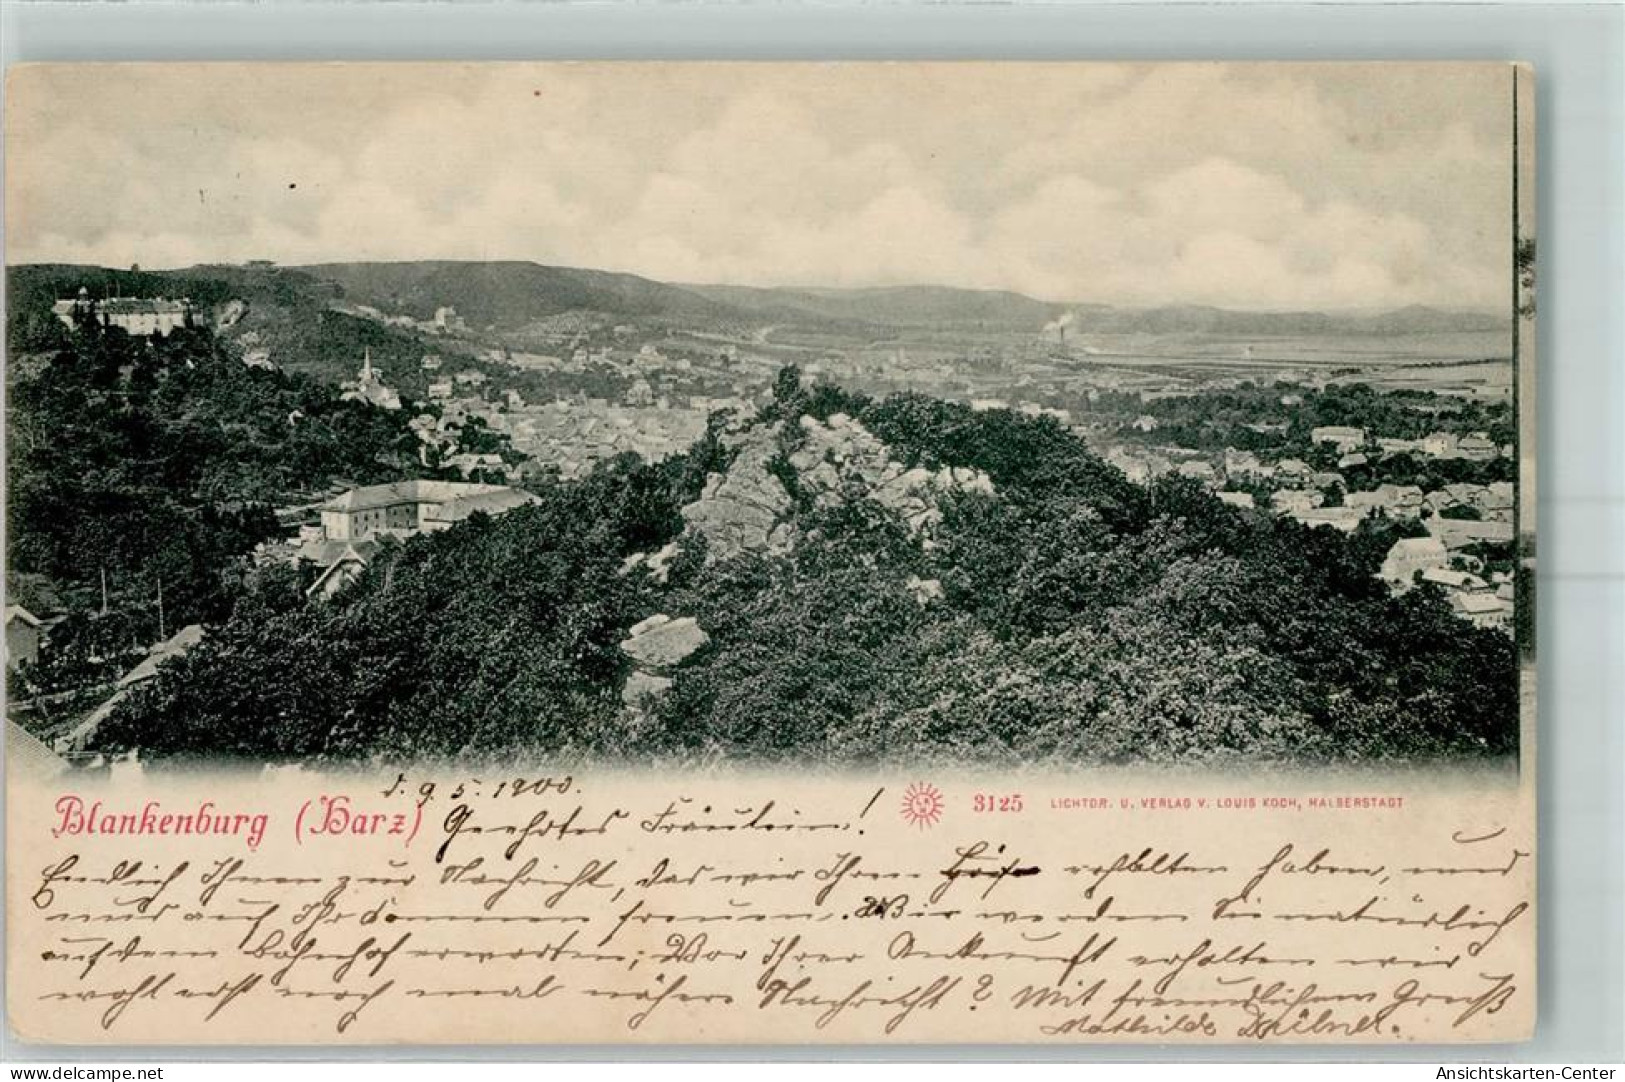 d. 9. 5. 1900.
Blankenburg (Harz) Geehrtes Fräulein! 3125 LICHTDR. U. VERLAG V. LOUIS KOCH, HALBERSTADT
Endlich Ihnen zur Nachricht, das wir Ihren erhalten haben, und
uns auf Ihr Kommen freuen. Wir werden Sie natürlich
auf dem Bahnhof erwarten; Vor Ihrer Ankunft erhalten wir
wohl erst noch mal nähere Nachricht? Mit freundlichem Gruß
Mathilde
www.ansichtskarten-center.de
Ansichtskarten-Center